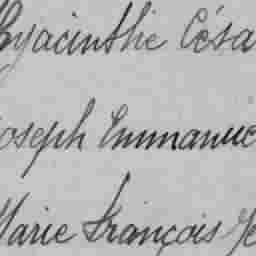 Hyacinthe Césa
Joseph Emmanue
Marie François